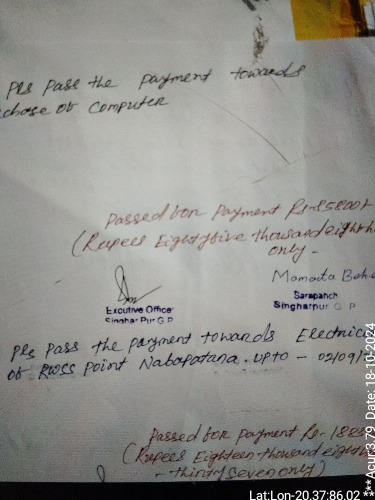 Pls pass the payment towards
chase of computer
Passed for payment Rs-85800/-
(Rupees Eightyfive thousand eight h
only-
Mamata Behe
Excutive Officer
Singhar Pur G P
Sarapanch
Singharpur G P
Pls pass the payment towards Electric
of RWSS point Nabapatana. upto - 02/09/
Passed for payment Rs- 188
(Rupees Eighteen thousand eight
- thirty seven only)
Lat:Lon-20.37:86.02
***Acur:3.79 Date:18-10-2024